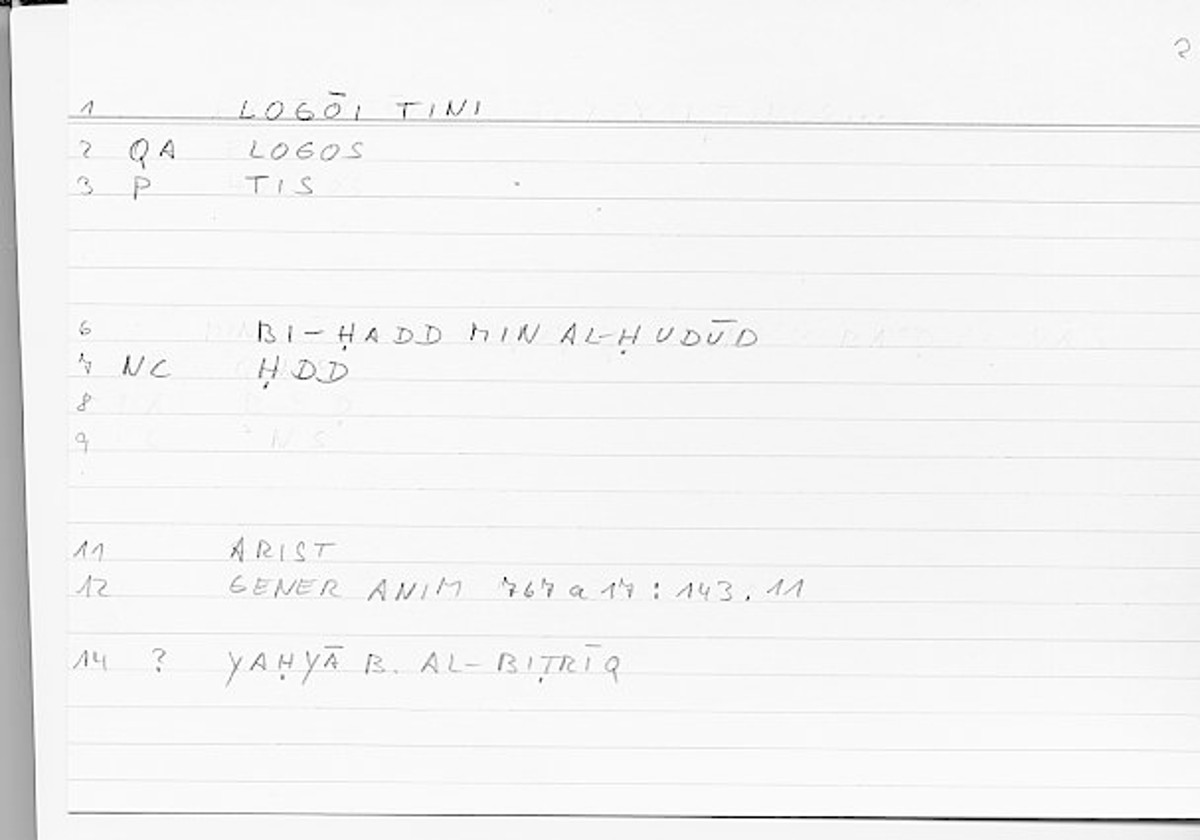 2
1 LOGŌI TINI
2 QA LOGOS
3 P TIS
6 BI-ḤADD MIN AL-ḤUDŪD
7 NC ḤDD
8
9
11 ARIST
12 GENER ANIM 767a17:143.11
14 ? YAḤYĀ B. AL-BIṬRĪQ